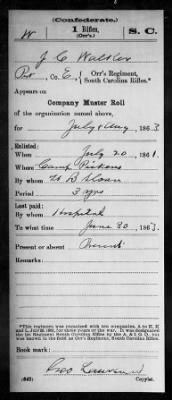 (Confederate.)
W 1 Rifles, S. C.
(Orr's.)
J C Walker
Pvt, Co. E, Orr's Regiment,
South Carolina Rifles.*
Appears on
Company Muster Roll
of the organization named above,
for July & Aug, 1863
Enlisted:
When July 20, 1861.
Where Camp Pickens
By whom H B Sloan
Period 3 yrs
Last paid:
By whom Hospital
To what time June 30, 1863.
Present or absent Present
Remarks:
*This regiment was organized with ten companies, A to
Book mark:
(642) Copyist.